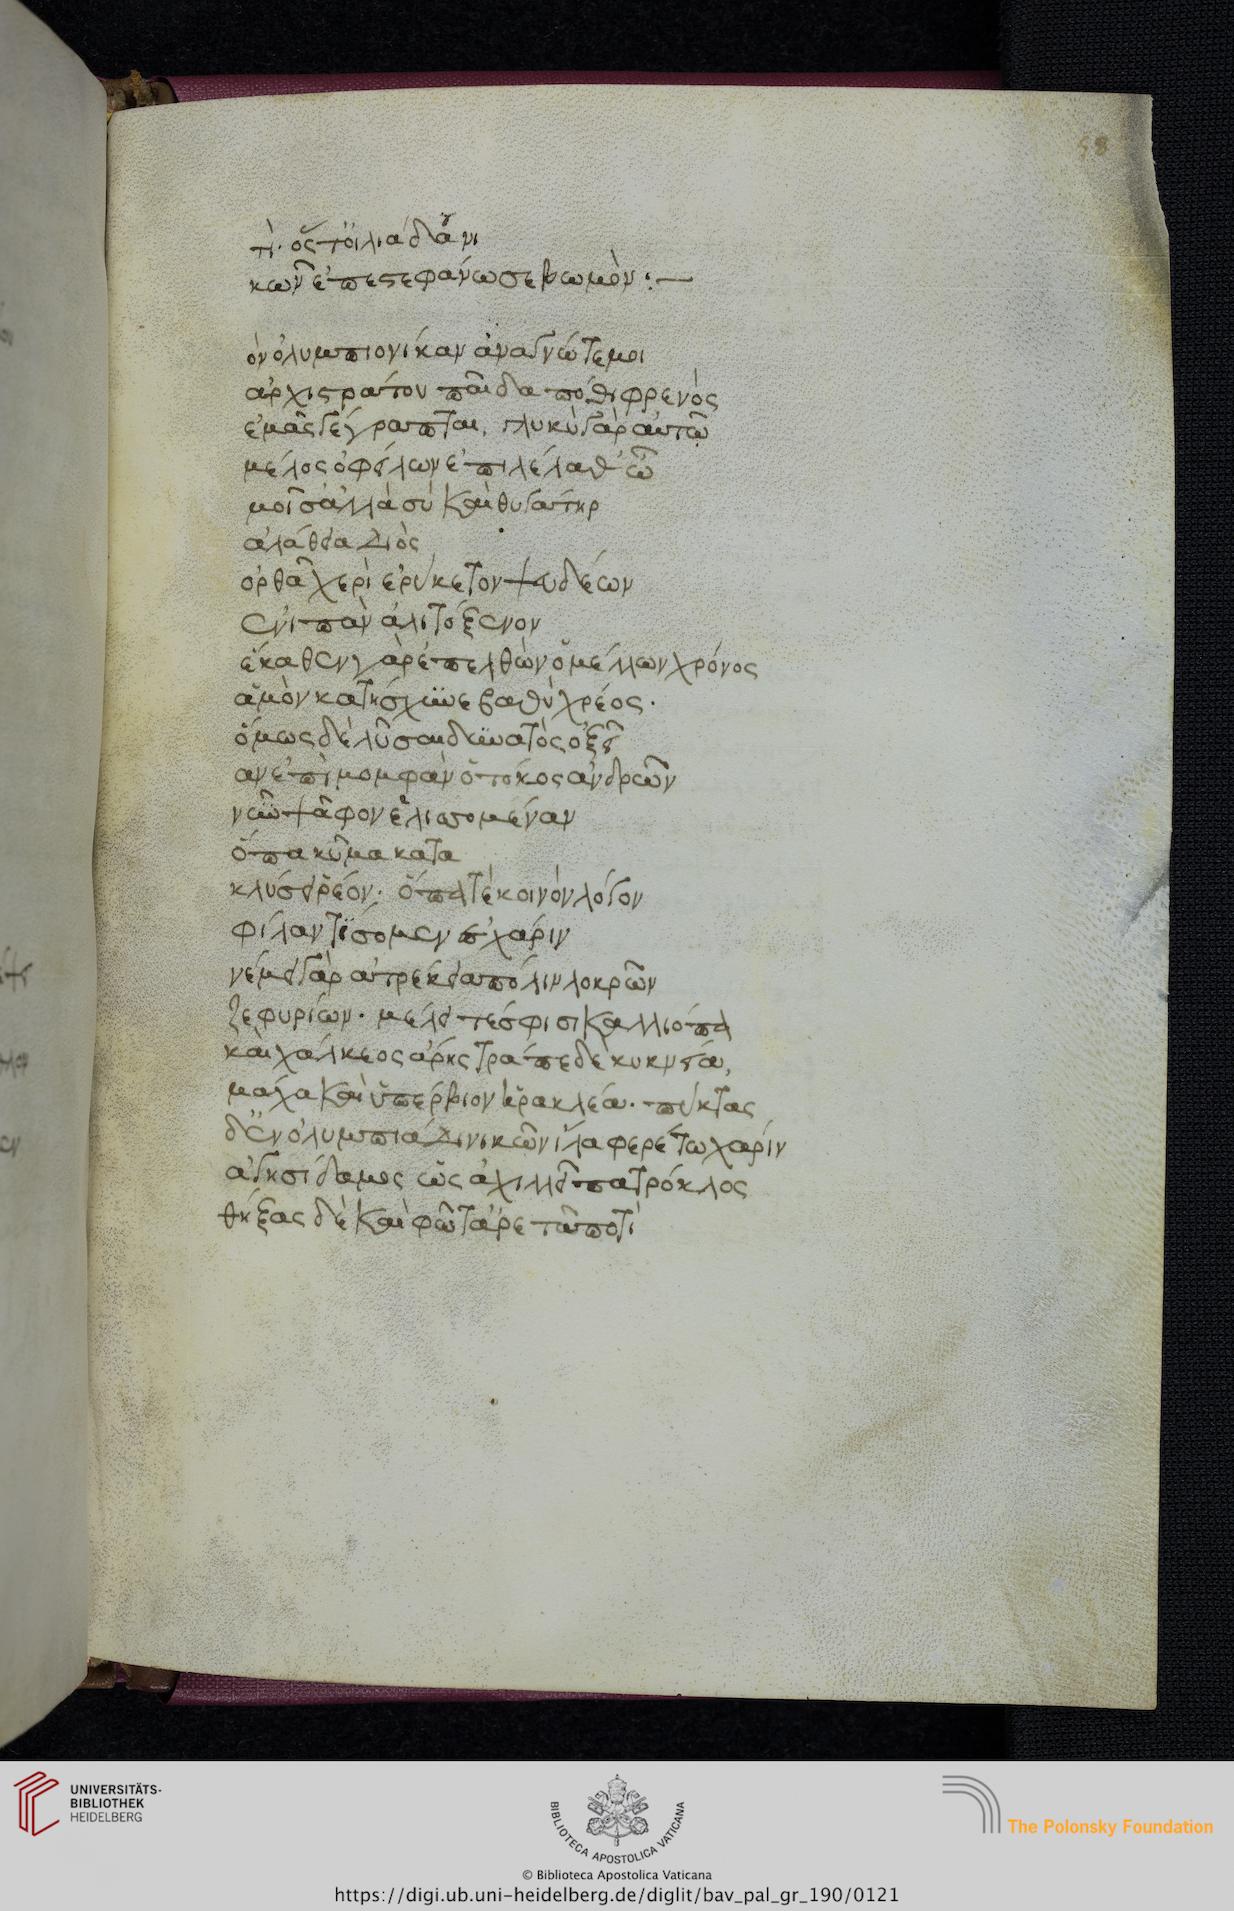 58
τι· ὃς τ' ὀϊλιάδαν νι
κῶν ἐπεστεφάνωσε βωμόν:—
ὸν ὀλυμπιονίκαν ἀνάγνωτέ μοι
ἀρχιστράτου παῖδα πόθι φρενὸς
ἐμᾶς γέγραπται. γλυκὺ γὰρ αὐτῶ
μέλος ὀφείλων ἐπιλέλαθ' ὦ
μοῖσ' ἀλλὰ σὺ καὶ θυγάτηρ
ἀλάθεια διὸς
ὀρθᾶ χερὶ ἐρύκετον ψευδέων
ἐνιπὰν ἀλιτόξενον
ἕκαθεν γὰρ ἐπελθὼν ὁ μέλλων χρόνος
ἁμὸν καταισχύνε βαθὺ χρέος.
ὅμως δὲ λῦσαι δυνατὸς ὀξεῖ
αν ἐπιμομφὰν ὁ τόκος ἀνδρῶν
νῦν ψᾶφον ἑλισσομέναν
ὅπα κῦμα κατα
κλύσει ῥέον· ὅπα τὲ κοινὸν λόγον
φίλαν τίσομεν ἐς χάριν
νέμει γὰρ ἀτρέκεια πόλιν λοκρῶν
ζεφυρίων· μέλει τέ σφισι καλλιόπα
καὶ χάλκεος ἄρης τράπε δὲ κυκνεία,
μάχα καὶ ὑπέρβιον ἡρακλέα· πύκτας
δ' ἐν ὀλυμπιάδι νικῶν ἴλα φερέτω χάριν
ἁγησίδαμος ὡς ἀχιλλεῖ πάτροκλος
θήξας δὲ καὶ φῶτ' ἀρετᾶ ποτὶ
UNIVERSITÄTS-
BIBLIOTHEK
HEIDELBERG
BIBLIOTECA APOSTOLICA VATICANA
The Polonsky Foundation
© Biblioteca Apostolica Vaticana
https://digi.ub.uni-heidelberg.de/diglit/bav_pal_gr_190/0121